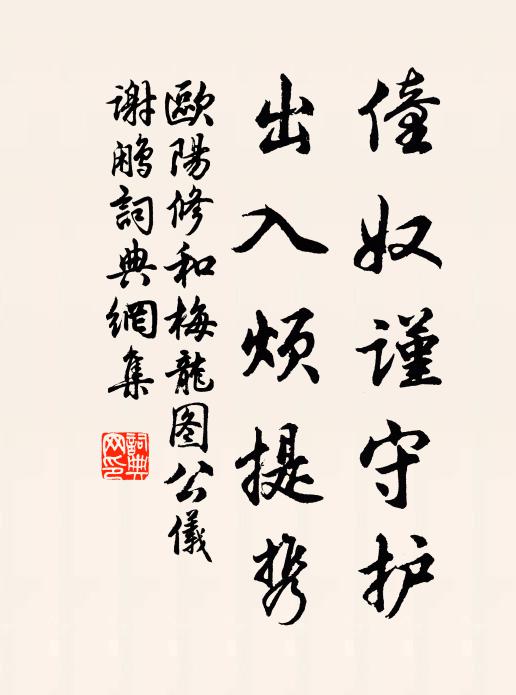 僮奴谨守护
出入烦提携
歐陽修和梅龍图公儀
谢鹇詞典網集
詞典网印